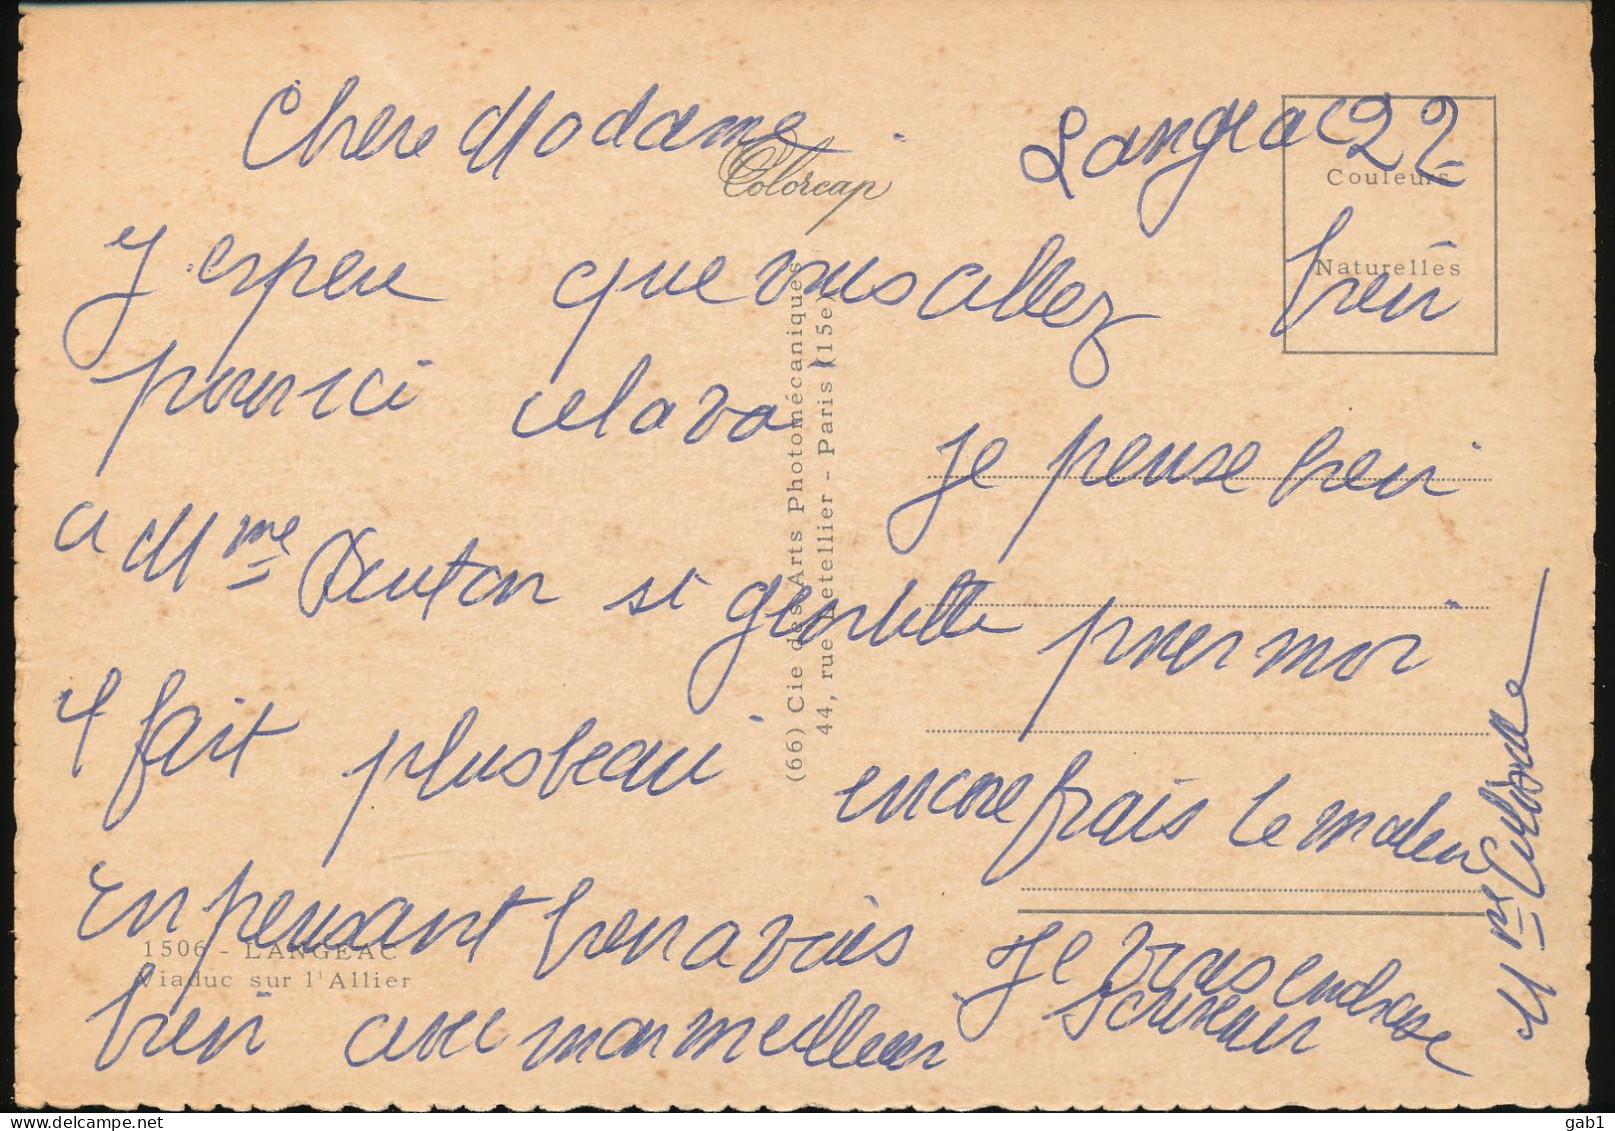 Chere Madame Langeac 22
Colorcap
Couleurs
Naturelles
J espere que vous allez bien
pour ici cela va Je pense bien
a Mme si gentille pour moi
Il fait plus beau encore frais le matin
En pensant bien a vous Je vous embrasse
bien avec mon meilleur souvenir
Mme
(66) Cie des Arts Photomécaniques
44, rue Letellier - Paris (15e)
1506 - LANGEAC
Viaduc sur l'Allier
gab1